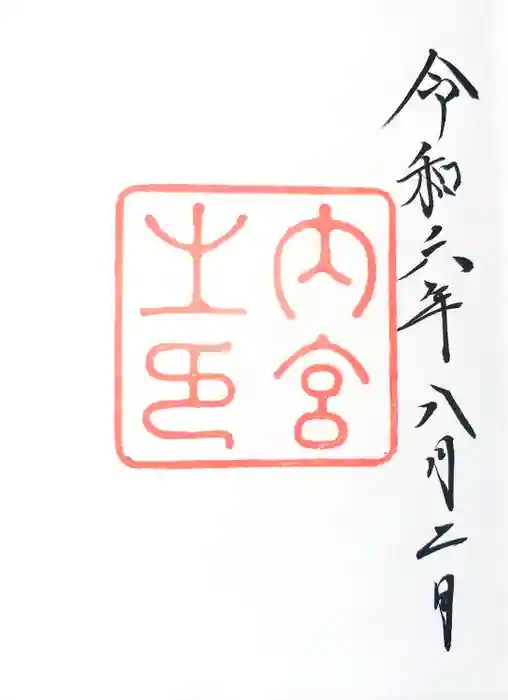 令和六年八月二日
内宮
之印